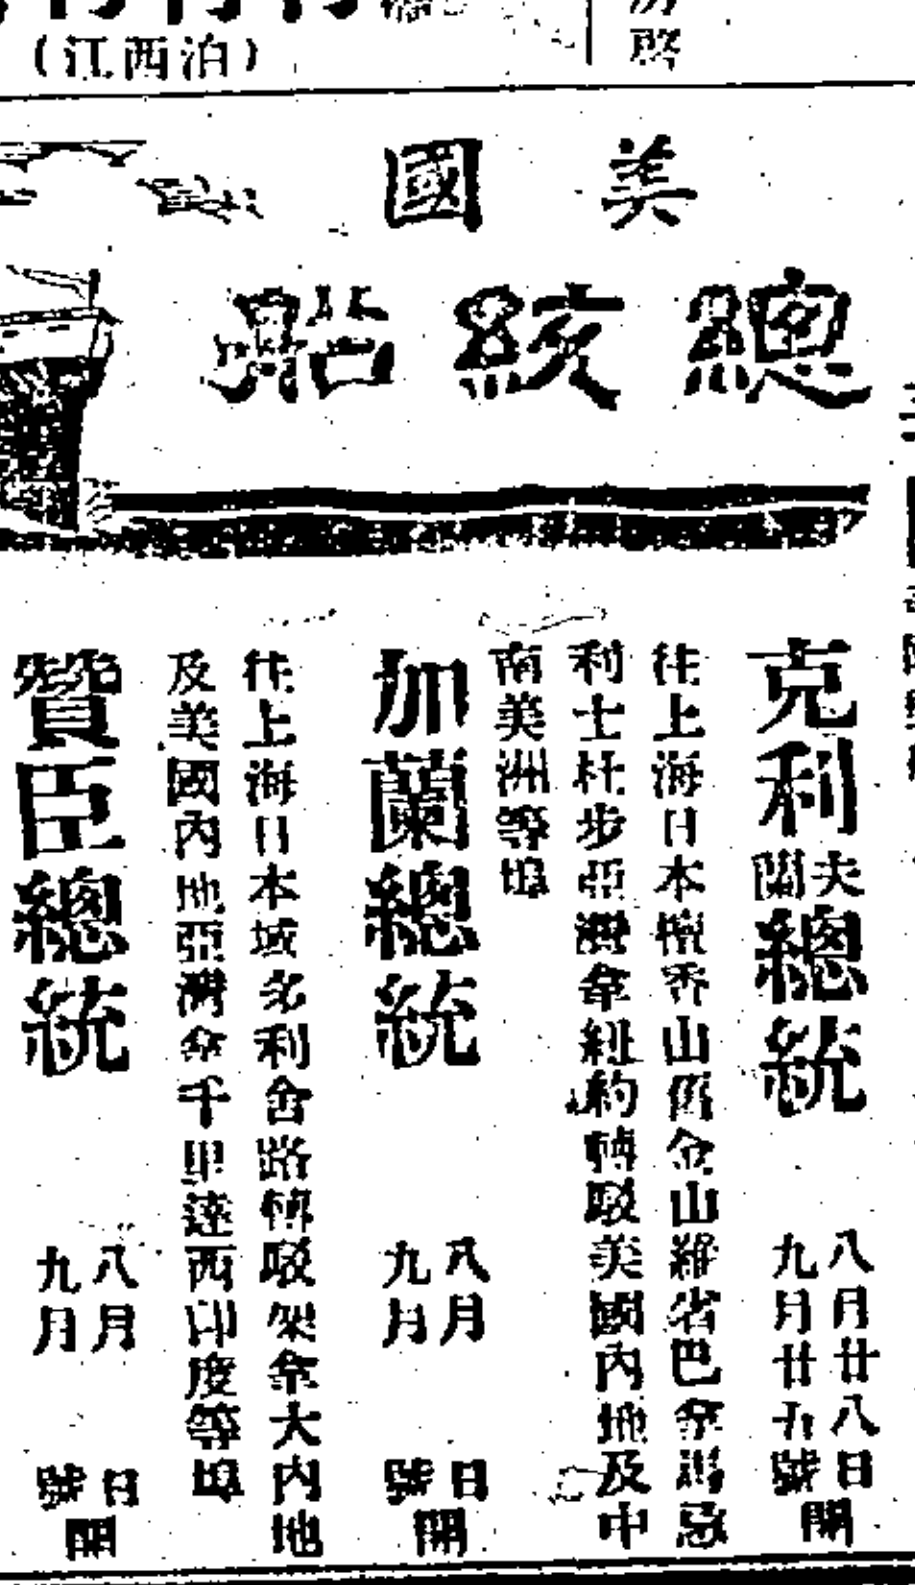 （江西泊）
啓
美國
總統船
克利夫關總統
八月廿八日
九月廿九號開
往上海日本檀香山舊金山羅省巴拿馬忌
利士杜步亞灣拿紐約轉駁美國內地及中
南美洲等埠
加蘭總統
八月 日
九月 號開
往上海日本域多利舍路轉駁架拿大內地
及美國內地亞灣拿千里達西印度等埠
贊臣總統
八月 日
九月 號開